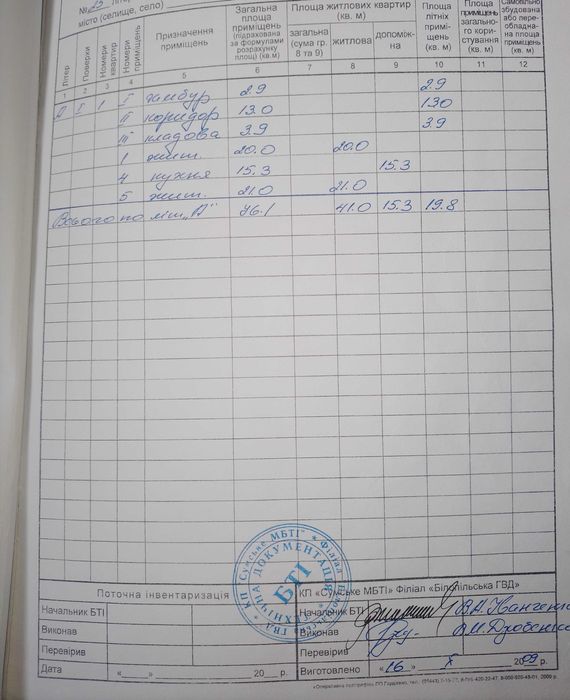 № 25
місто (селище, село)
Літер
Поверхи
Номери квартир
Номери приміщень
Призначення приміщень
Загальна площа приміщень (підрахована за формулами розрахунку площ) (кв.м)
Площа житлових квартир (кв. м)
загальна (сума гр. 8 та 9)
житлова
допоміж-на
Площа літніх примі-щень (кв. м)
Площа приміщень загально-го кори-стування (кв. м)
Самовільно збудована або пере-обладна-на площа приміщень (кв. м)
1 2 3 4 5 6 7 8 9 10 11 12
А I 1 I тамбур 2.9 2.9
II коридор 13.0 13.0
III кладова 3.9 3.9
1 жит. 20.0 20.0
4 кухня 15.3 15.3
5 жит. 21.0 21.0
Всього по літ. "А" 76.1 41.0 15.3 19.8
КП "Сумське МБТІ" * Філіал
ТЕХНІЧНА ДОКУМЕНТАЦІЯ
БТІ
Поточна інвентаризація
КП «Сумське МБТІ» Філіал «Білопільська ГВД»
Начальник БТІ
Начальник БТІ
Виконав
Виконав
Перевірив
Перевірив
Дата «____» ________ 20__ р.
Виготовлено «16» X 2009 р.